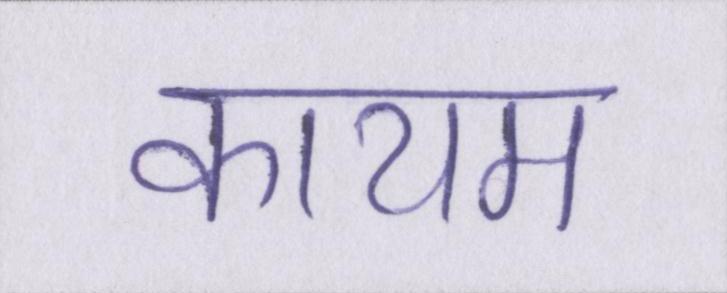 कायम